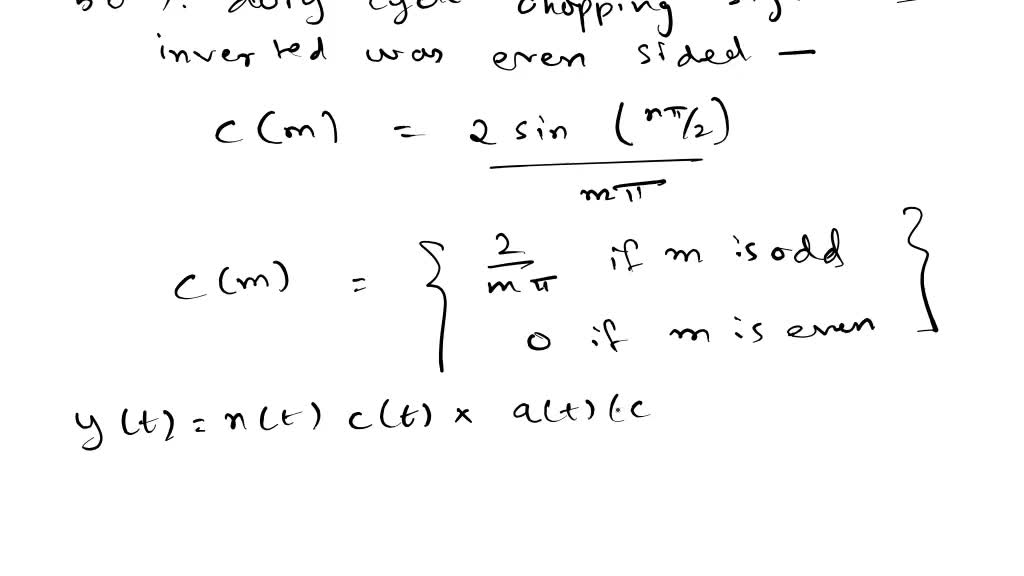 50 % duty cycle chopping
inverted was even sided —
c(m) = 2 sin (nπ/2)
mπ
c(m) = { 2/mπ if m is odd }
0 if m is even
y(t) = n(t) c(t) × a(t) (c